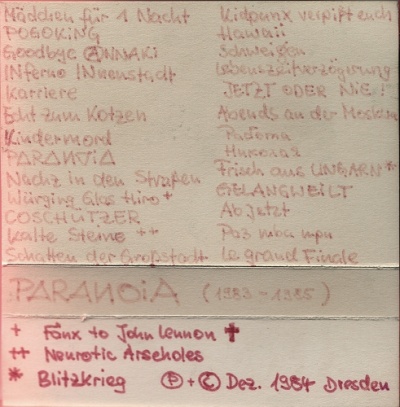 Mädchen für 1 Nacht
POGOKING
Goodbye ANNAKI
INferno INnenstadt
Karriere
Echt zum Kotzen
Kindermord
PARANOiA
Nachz in den Straßen
Würging Glas Hiro+
COSCHÜTZER
Kalte Steine ++
Schatten der Großstadt
Kidpunx verpißt euch
Hawaii
Schweißen
Lebenszeitverzögerung
JETZT ODER NIE
Abends an der Moskwa
Работа
Николая
Frisch aus UNGARN*
GELANGWEILT
Ab jetzt
Раз два три
Le grand Finale
PARANOiA (1983-1985)
+ Fanx to John Lennon ✝
++ Neurotic Arseholes
* Blitzkrieg Ⓟ+Ⓒ Dez. 1984 Dresden